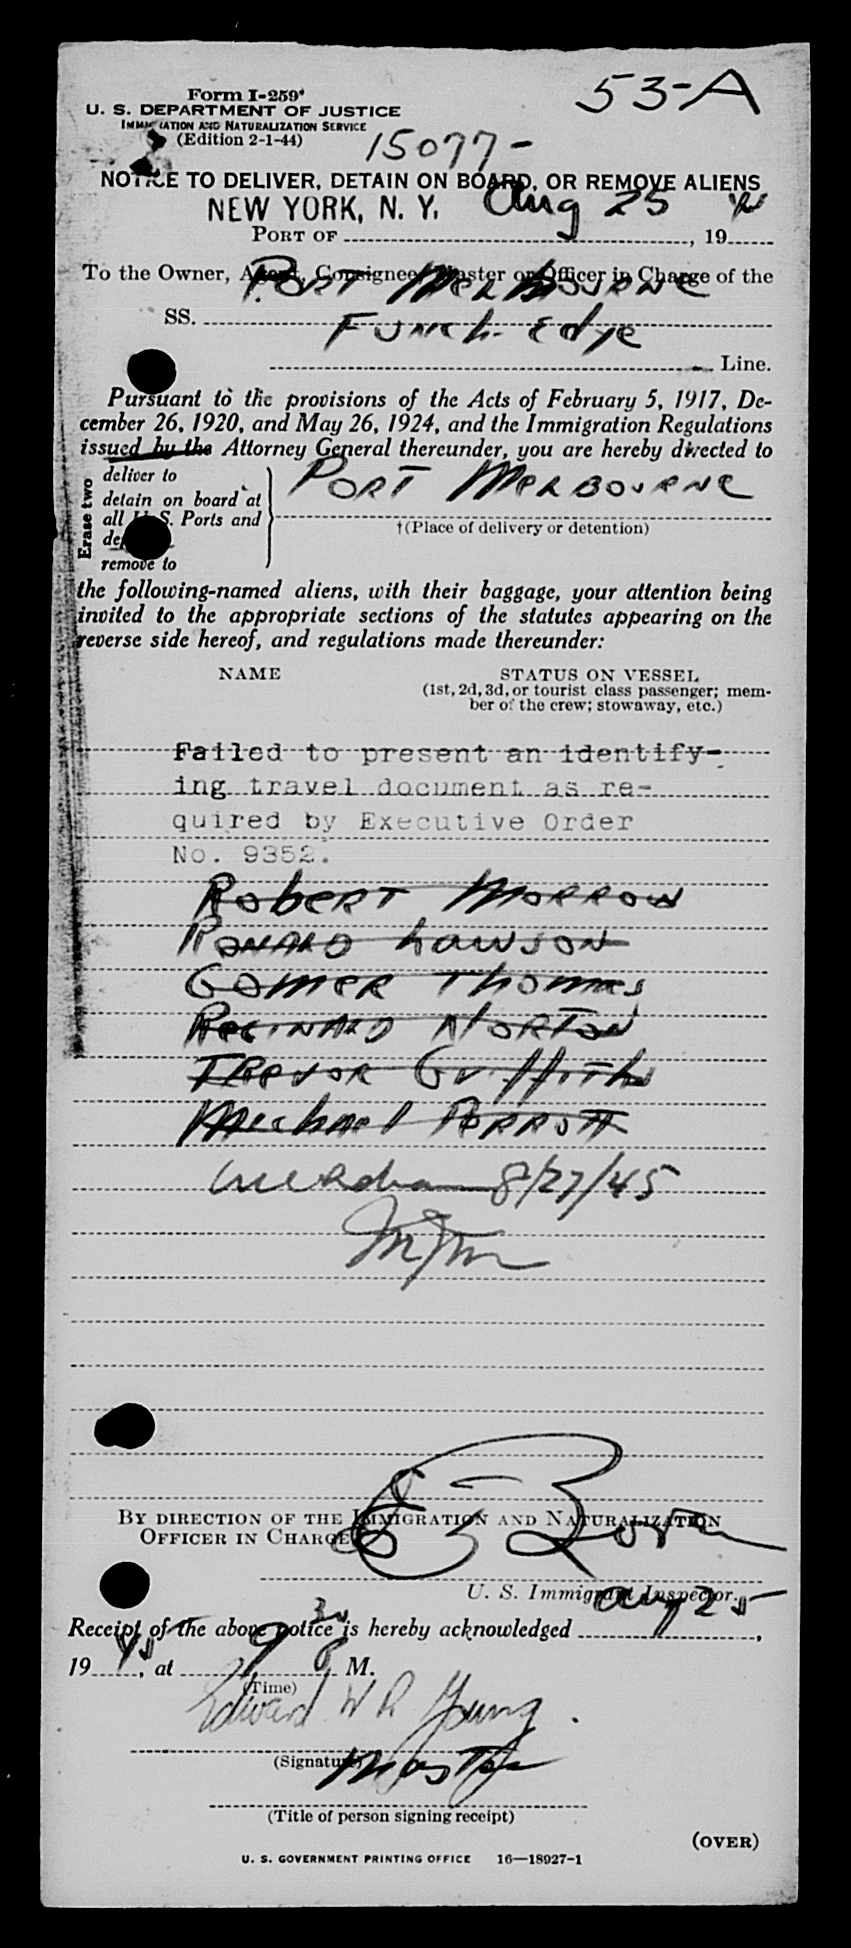 53-A
Form I-259
U. S. DEPARTMENT OF JUSTICE
IMMIGRATION AND NATURALIZATION SERVICE
(Edition 2-1-44)
15077-
NOTICE TO DELIVER, DETAIN ON BOARD, OR REMOVE ALIENS
NEW YORK, N. Y. Aug 25
PORT OF , 19
To the Owner, Agent, Consignee, Master or Officer in Charge of the
PORT MELBOURNE
SS.
Funch Edye
Line.
Pursuant to the provisions of the Acts of February 5, 1917, De-
cember 26, 1920, and May 26, 1924, and the Immigration Regulations
issued by the Attorney General thereunder, you are hereby directed to
Erase two
deliver to
detain on board at
all U. S. Ports and
remove to
PORT MELBOURNE
†(Place of delivery or detention)
the following-named aliens, with their baggage, your attention being
invited to the appropriate sections of the statutes appearing on the
reverse side hereof, and regulations made thereunder:
NAME STATUS ON VESSEL
(1st, 2d, 3d, or tourist class passenger; mem-
ber of the crew; stowaway, etc.)
Failed to present an identify-
ing travel document as re-
quired by Executive Order
No. 9352.
Robert Morrow
Ronald Lawson
Gomer Thomas
Reginald Norton
Trevor Griffith
Michael Parrott
8/27/45
BY DIRECTION OF THE IMMIGRATION AND NATURALIZATION
OFFICER IN CHARGE
U. S. Immigrant Inspector.
Aug 25
Receipt of the above notice is hereby acknowledged ,
19 45, at 9 30 P M.
(Time)
Edward W R Young.
(Signature)
Master
(Title of person signing receipt)
(OVER)
U. S. GOVERNMENT PRINTING OFFICE 16—18927-1